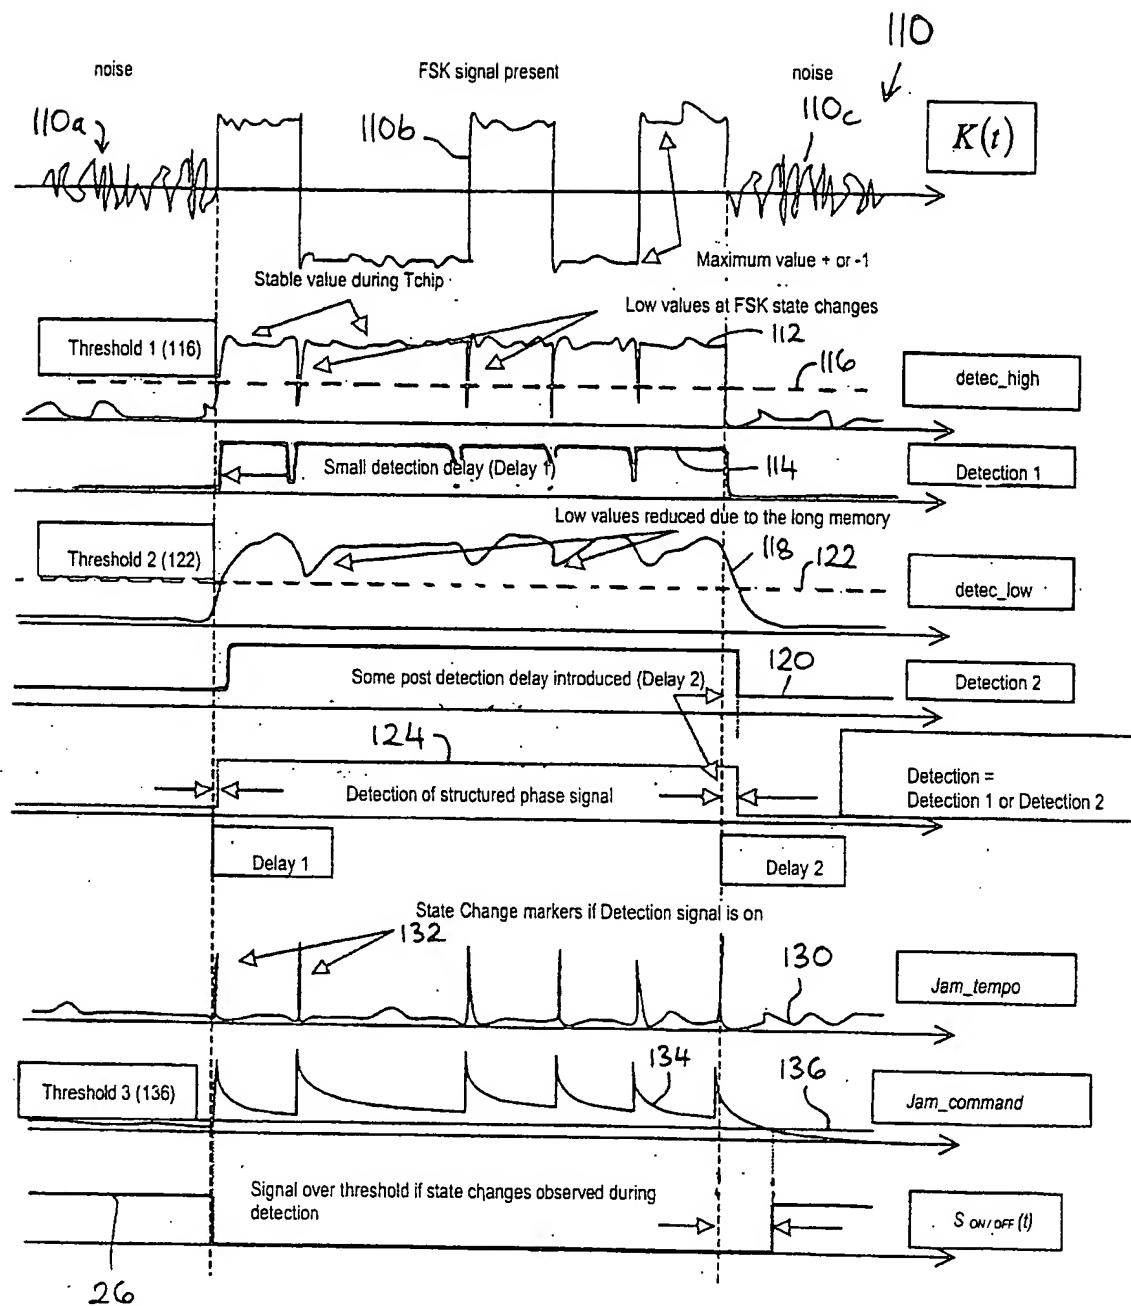 110
noise
FSK signal present
noise
110a
110b
110c
K(t)
Maximum value + or -1
Stable value during Tchip
Low values at FSK state changes
Threshold 1 (116)
112
116
detec_high
Small detection delay (Delay 1)
114
Detection 1
Low values reduced due to the long memory
Threshold 2 (122)
118
122
detec_low
Some post detection delay introduced (Delay 2)
120
Detection 2
124
Detection of structured phase signal
Detection =
Detection 1 or Detection 2
Delay 1
Delay 2
State Change markers if Detection signal is on
132
130
Jam_tempo
Threshold 3 (136)
134
136
Jam_command
Signal over threshold if state changes observed during
detection
S ON/OFF (t)
26